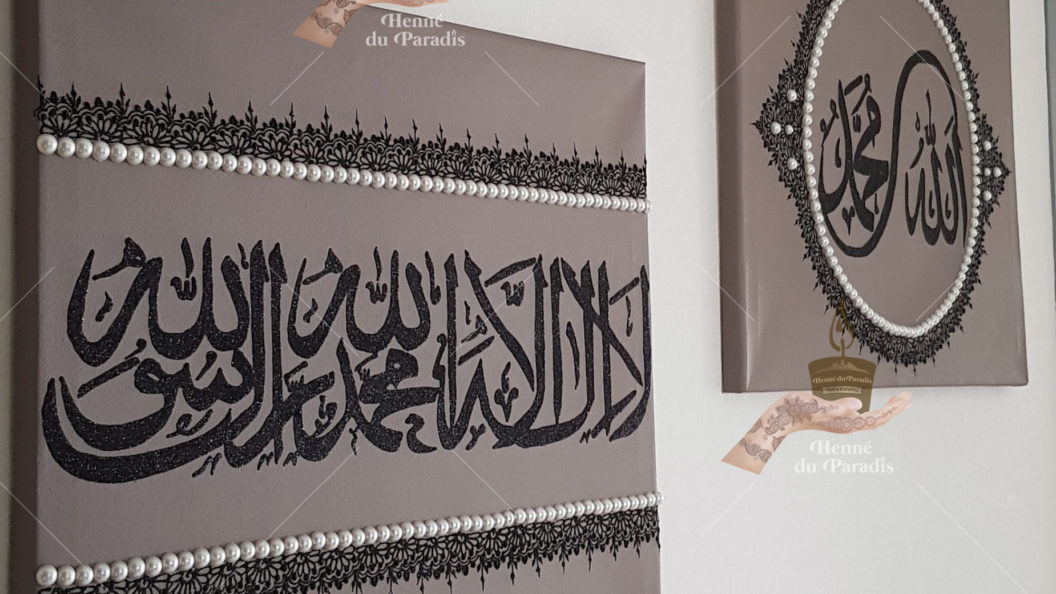 Henné
du Paradis
لا اله الا الله محمد رسول الله
الله
محمد
Henné du Paradis
Henné
du Paradis